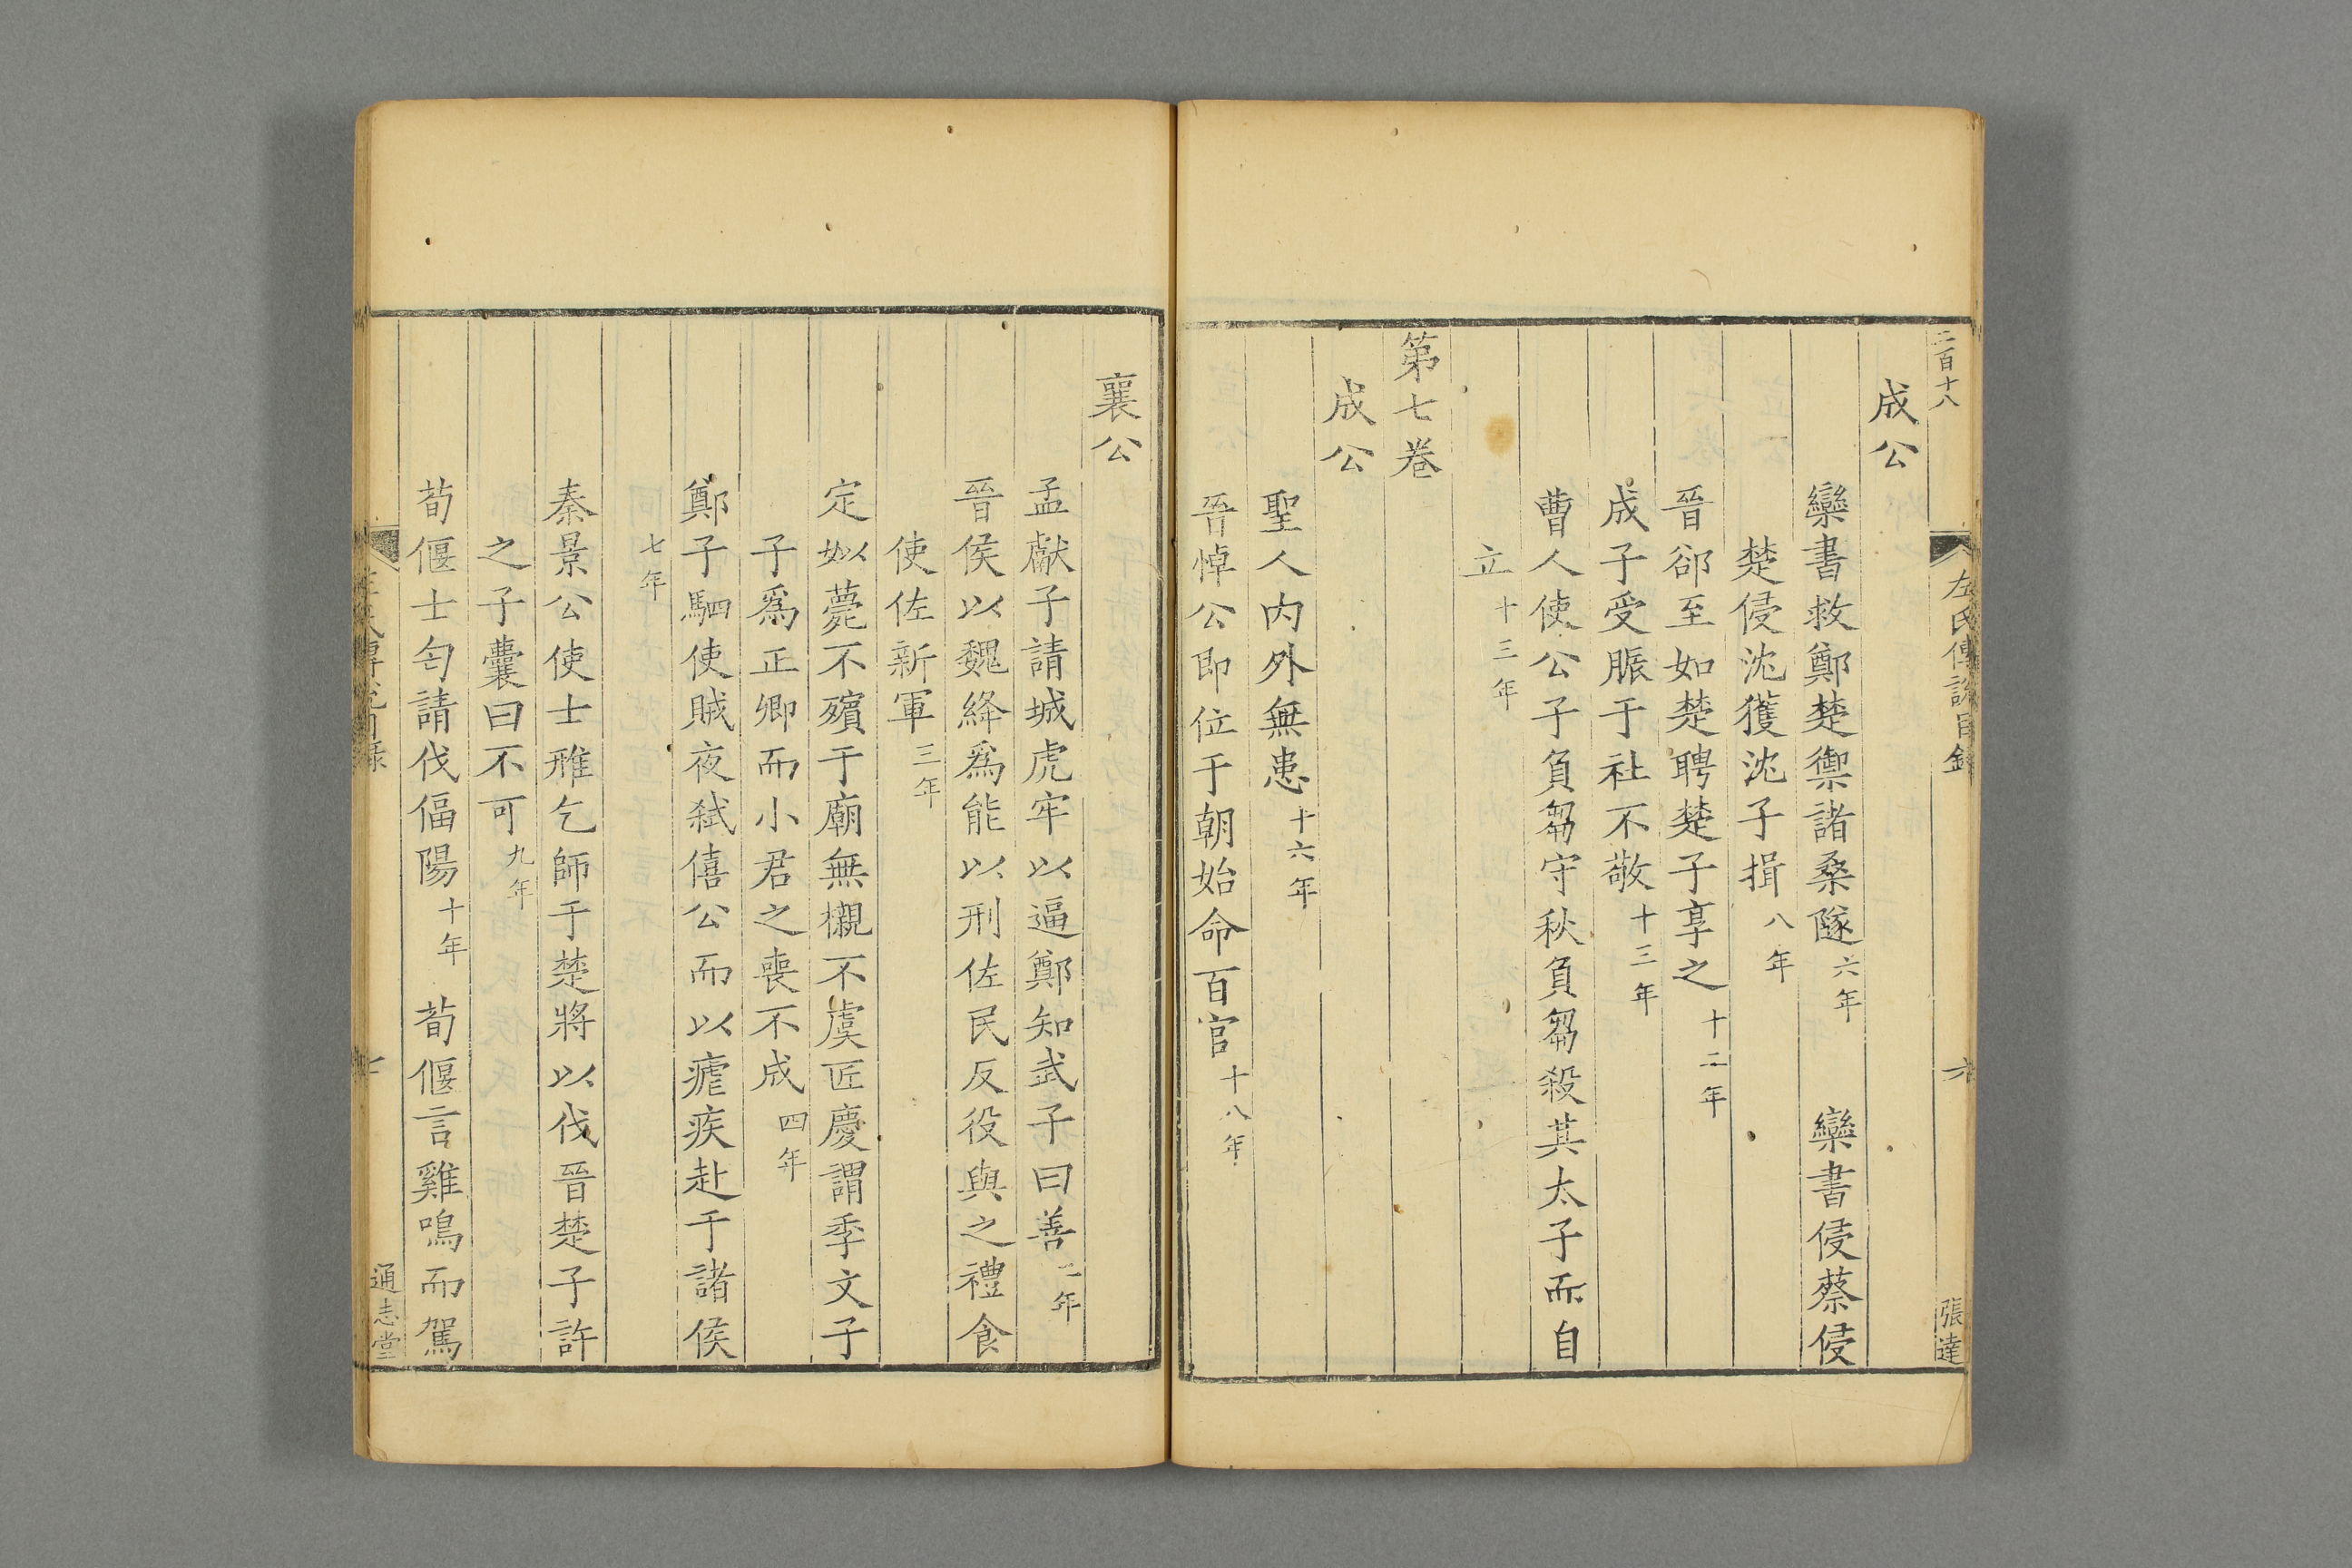 二百十八
左氏傳說目錄
六
張達
成公
欒書救鄭楚禦諸桑隧六年 欒書侵蔡侵
楚侵沈獲沈子揖八年
晉郤至如楚聘楚子享之十二年
成子受脤于社不敬十三年
曹人使公子負芻守秋負芻殺其太子而自
立十三年
第七卷
成公
聖人內外無患十六年
晉悼公即位于朝始命百官十八年
襄公
孟獻子請城虎牢以逼鄭知武子曰善二年
晉侯以魏絳爲能以刑佐民反役與之禮食
使佐新軍三年
定姒薨不殯于廟無櫬不虞匠慶謂季文子
子爲正卿而小君之喪不成四年
鄭子駟使賊夜弑僖公而以瘧疾赴于諸侯
七年
秦景公使士雃乞師于楚將以伐晉楚子許
之子囊曰不可九年
荀偃士匄請伐偪陽十年 荀偃言雞鳴而駕
左氏傳說目錄
七
通志堂